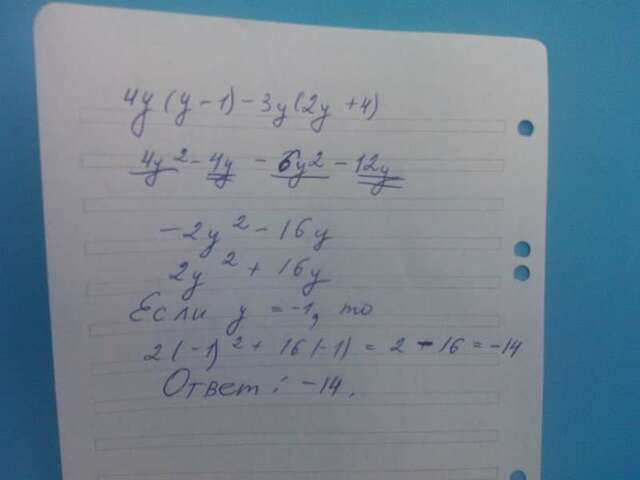 4y(y-1)-3y(2y+4)
4y²-4y-6y²-12y
-2y²-16y
2y²+16y
Если y=-1, то
2(-1)²+16(-1)=2-16=-14
Ответ: -14.